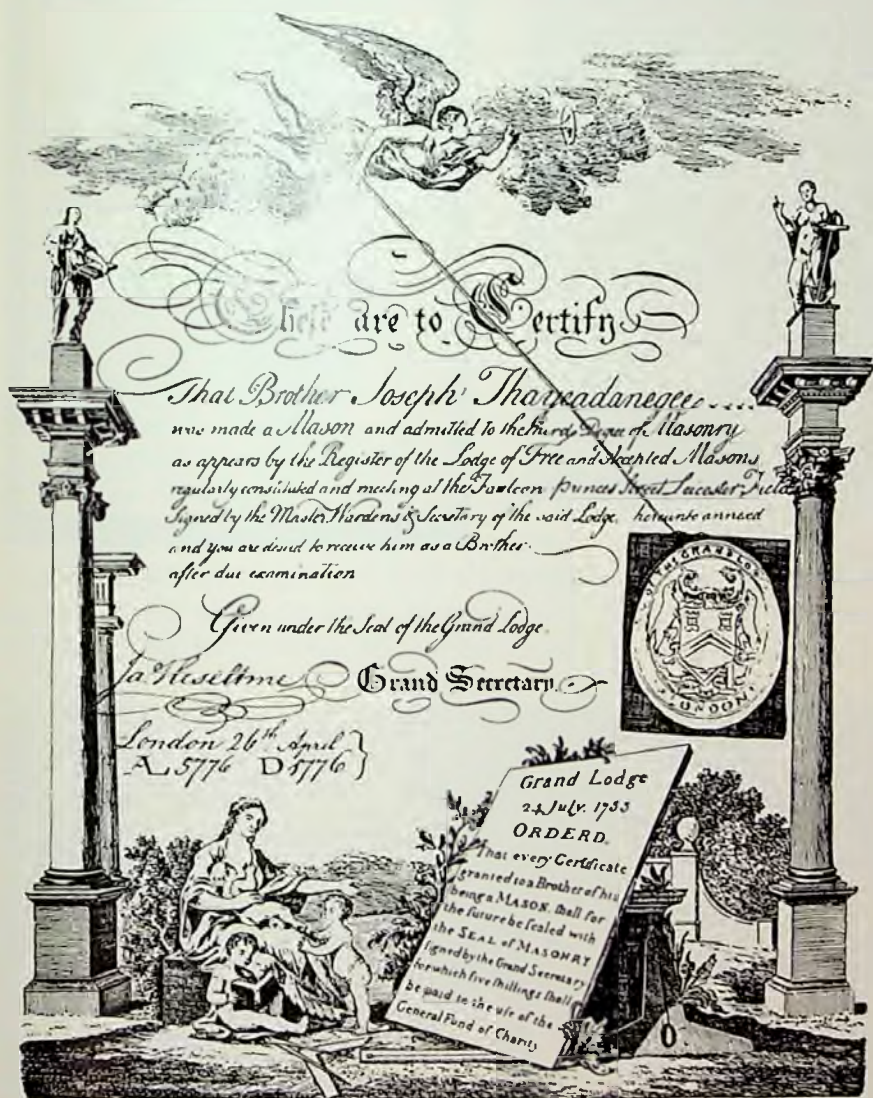 These are to Certify
That Brother Joseph Thayeadanegee....
was made a Mason and admitted to the third Degree of Masonry
as appears by the Register of the Lodge of Free and Accepted Masons
regularly constituted and meeting at the Faulcon Princes Street Leicester Field
Signed by the Master Wardens & Secretary of the said Lodge hereunto annexed
and you are desired to receive him as a Brother
after due examination
Given under the Seal of the Grand Lodge
Jas Heseltine Grand Secretary
London 26th April
AL 5776 D
OF THE GRAND LO
LONDON
Grand Lodge
24 July. 1755
ORDERD.
That every Certificate
granted to a Brother of his
being a MASON. shall for
the future be sealed with
the SEAL of MASONRY
signed by the Grand Secretary
for which five shillings shall
be paid to the use of the
General Fund of Charity